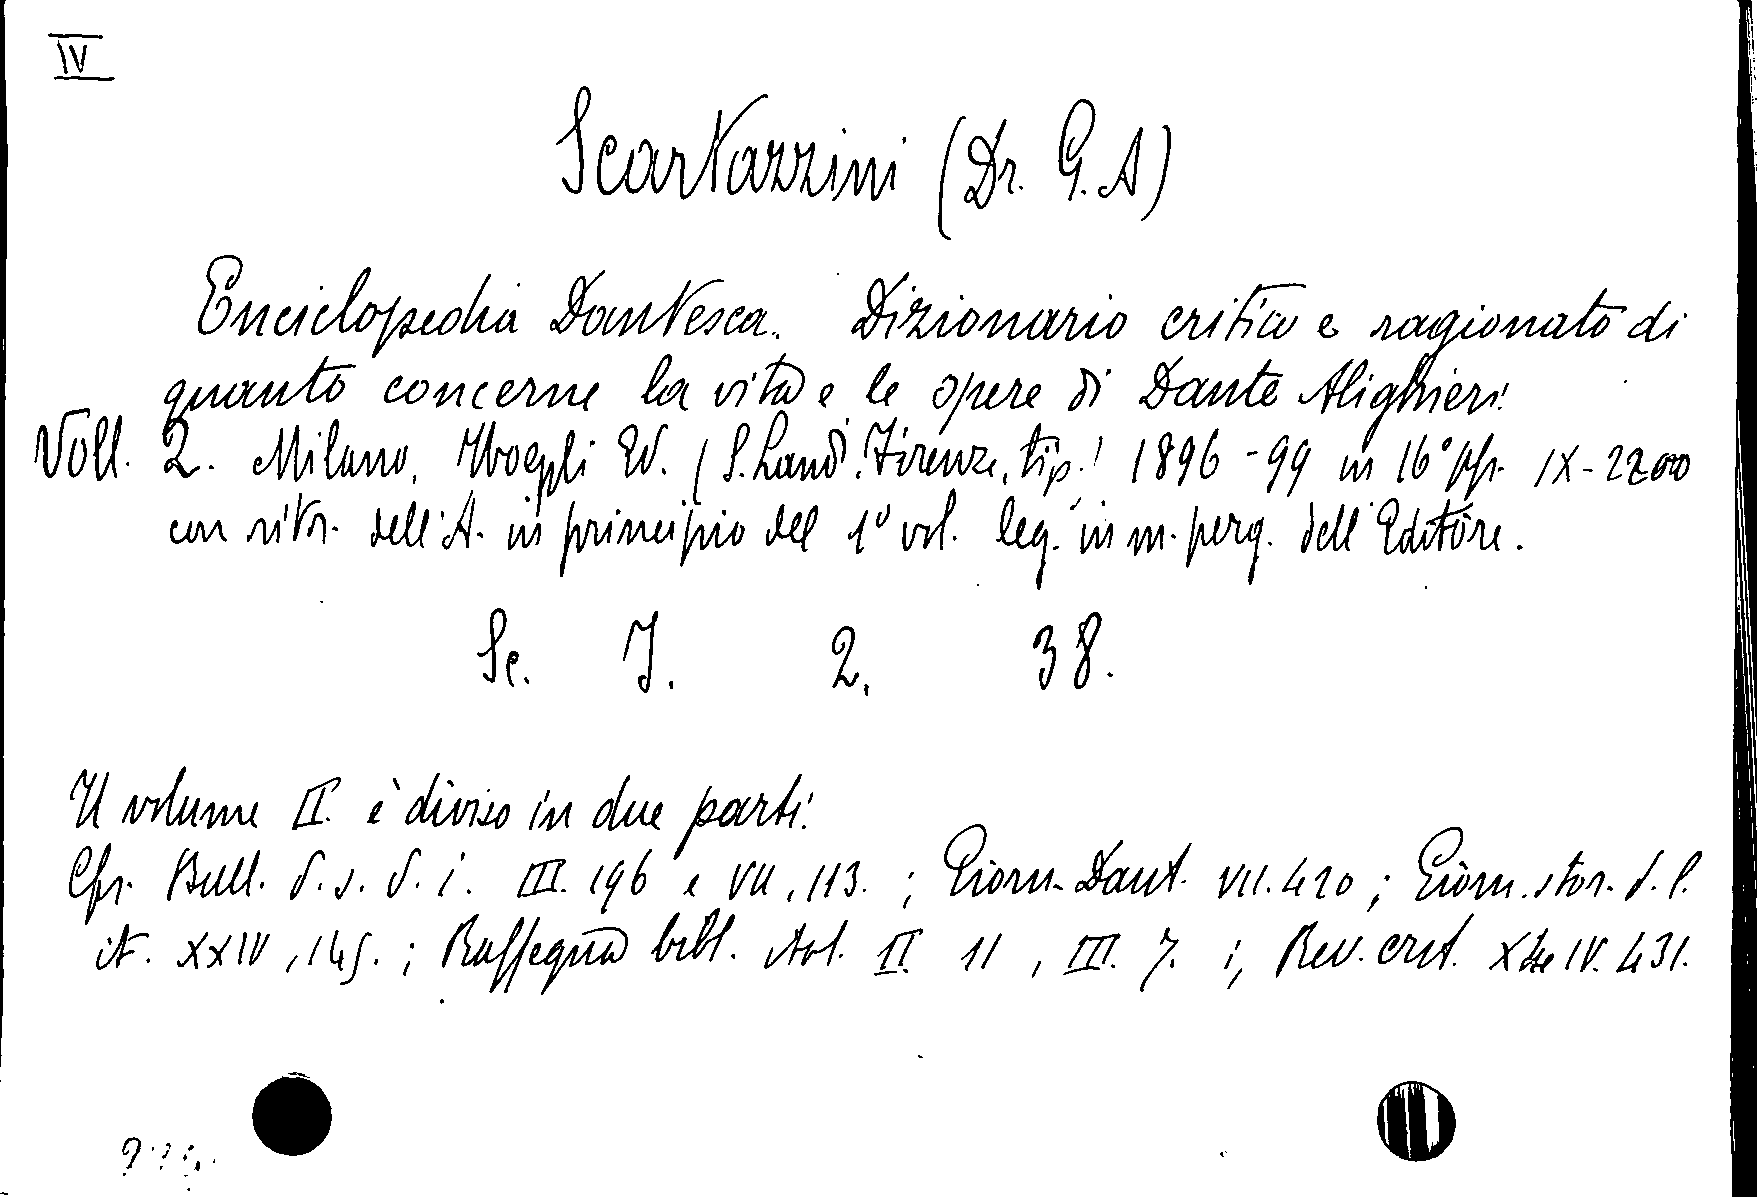 IV
Scartazzini (Dr. G. A)
Enciclopedia Dantesca. Dizionario critico e ragionato di
quanto concerne la vita e le opere di Dante Alighieri.
Voll. 2. Milano, Hoepli Ed. (S. Landi, Firenze, tip.) 1896-99 in 16° pp. IX-2200
con ritr. dell'A. in principio del 1° vol. leg. in m. perg. dell'Editore.
Sc. I. 2. 38.
Il volume II. è diviso in due parti.
Cfr. Bull. d. s. d. i. III. 196 e VII, 113. ; Giorn. Dant. VII. 420 ; Giorn. stor. d. l.
it. XXIV, 145. ; Rassegna bibl. II. 11, III. 7. ; Rev. crit. 431.